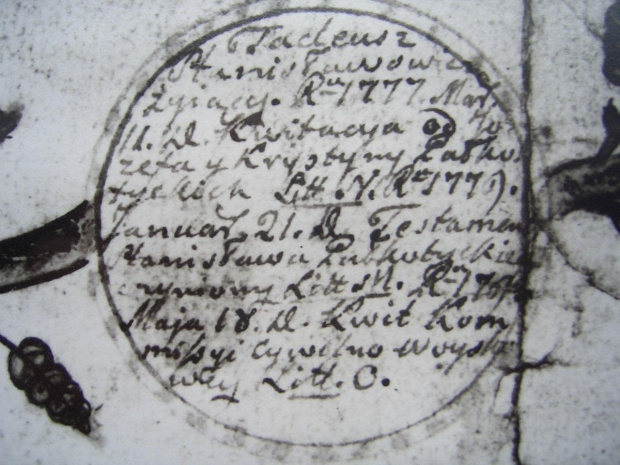 6 Tadeusz
Stanisławowicz
żyiący. Rku 1777 Mart.
11. D. Kwitacya od Jo-
zefa y Krystyny Zabło-
tyckich Litt. N. Rku 1779.
Januar. 21. D. Testament
Stanisława
czyniony Litt: M. Rku
Maja 18. D. Kwit Kom-
missyi Cywilno Woysko-
wey Litt. O.